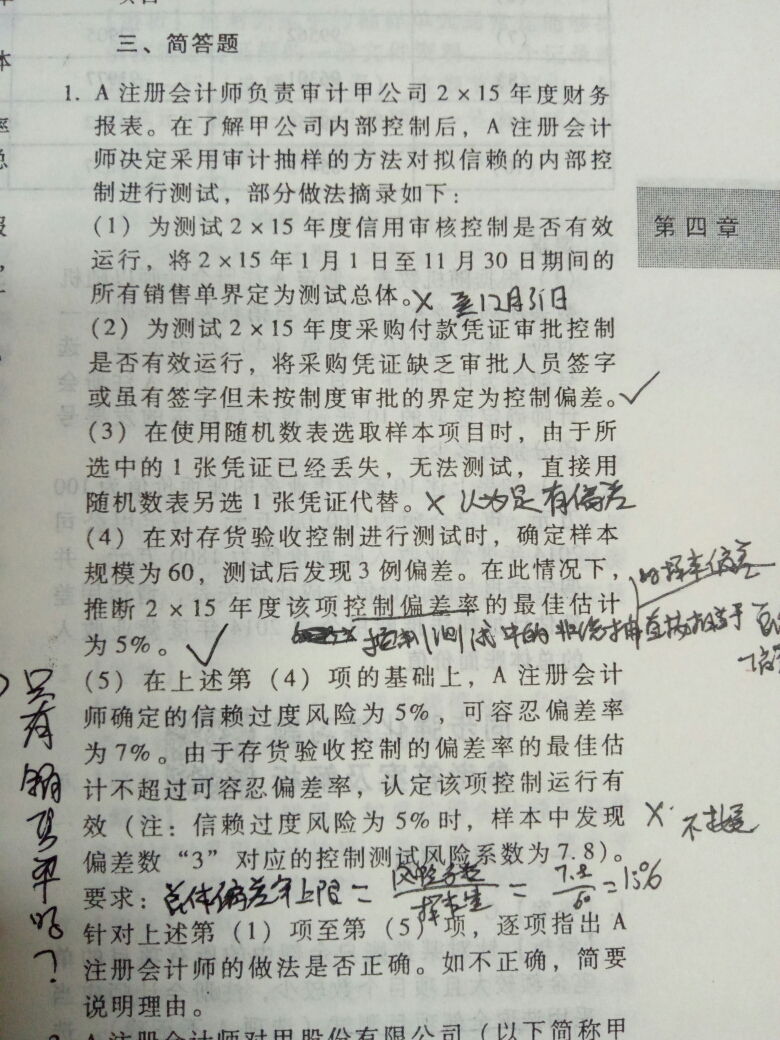 三、简答题
1. A 注册会计师负责审计甲公司 2×15 年度财务
报表。在了解甲公司内部控制后，A 注册会计
师决定采用审计抽样的方法对拟信赖的内部控
制进行测试，部分做法摘录如下：
(1) 为测试 2×15 年度信用审核控制是否有效
运行，将 2×15 年 1 月 1 日至 11 月 30 日期间的
所有销售单界定为测试总体。× 至12月31日
(2) 为测试 2×15 年度采购付款凭证审批控制
是否有效运行，将采购凭证缺乏审批人员签字
或虽有签字但未按制度审批的界定为控制偏差。✓
(3) 在使用随机数表选取样本项目时，由于所
选中的 1 张凭证已经丢失，无法测试，直接用
随机数表另选 1 张凭证代替。× 认为是有偏差
(4) 在对存货验收控制进行测试时，确定样本
规模为 60，测试后发现 3 例偏差。在此情况下，
推断 2×15 年度该项控制偏差率的最佳估计
为 5%。✓
控制测试中的
(5) 在上述第（4）项的基础上，A 注册会计
师确定的信赖过度风险为 5%，可容忍偏差率
为 7%。由于存货验收控制的偏差率的最佳估
计不超过可容忍偏差率，认定该项控制运行有
效（注：信赖过度风险为 5% 时，样本中发现
偏差数“3”对应的控制测试风险系数为 7.8）。
× 不接受
要求：总体偏差率上限 = 风险系数/样本量 = 7.8/60 = 13%
针对上述第（1）项至第（5）项，逐项指出 A
注册会计师的做法是否正确。如不正确，简要
说明理由。
第四章
只有销售单吗？